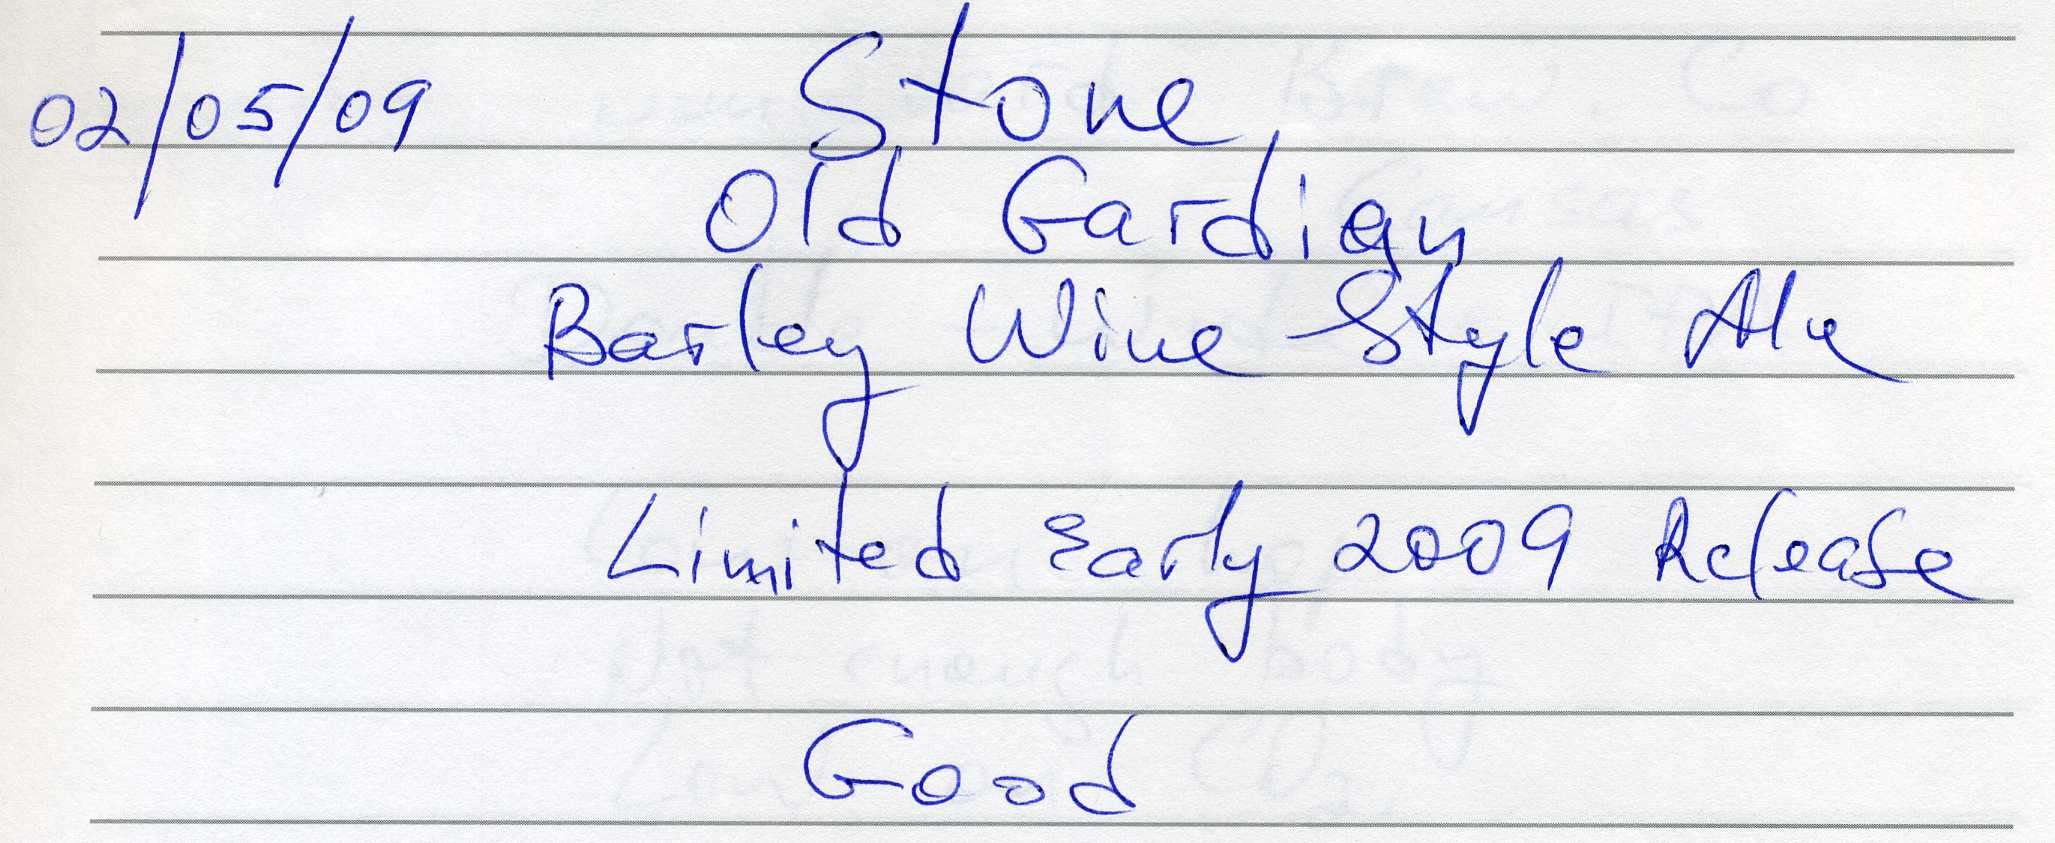 02/05/09 Stone
Old Gardian
Barley Wine Style Ale
Limited Early 2009 Release
Good